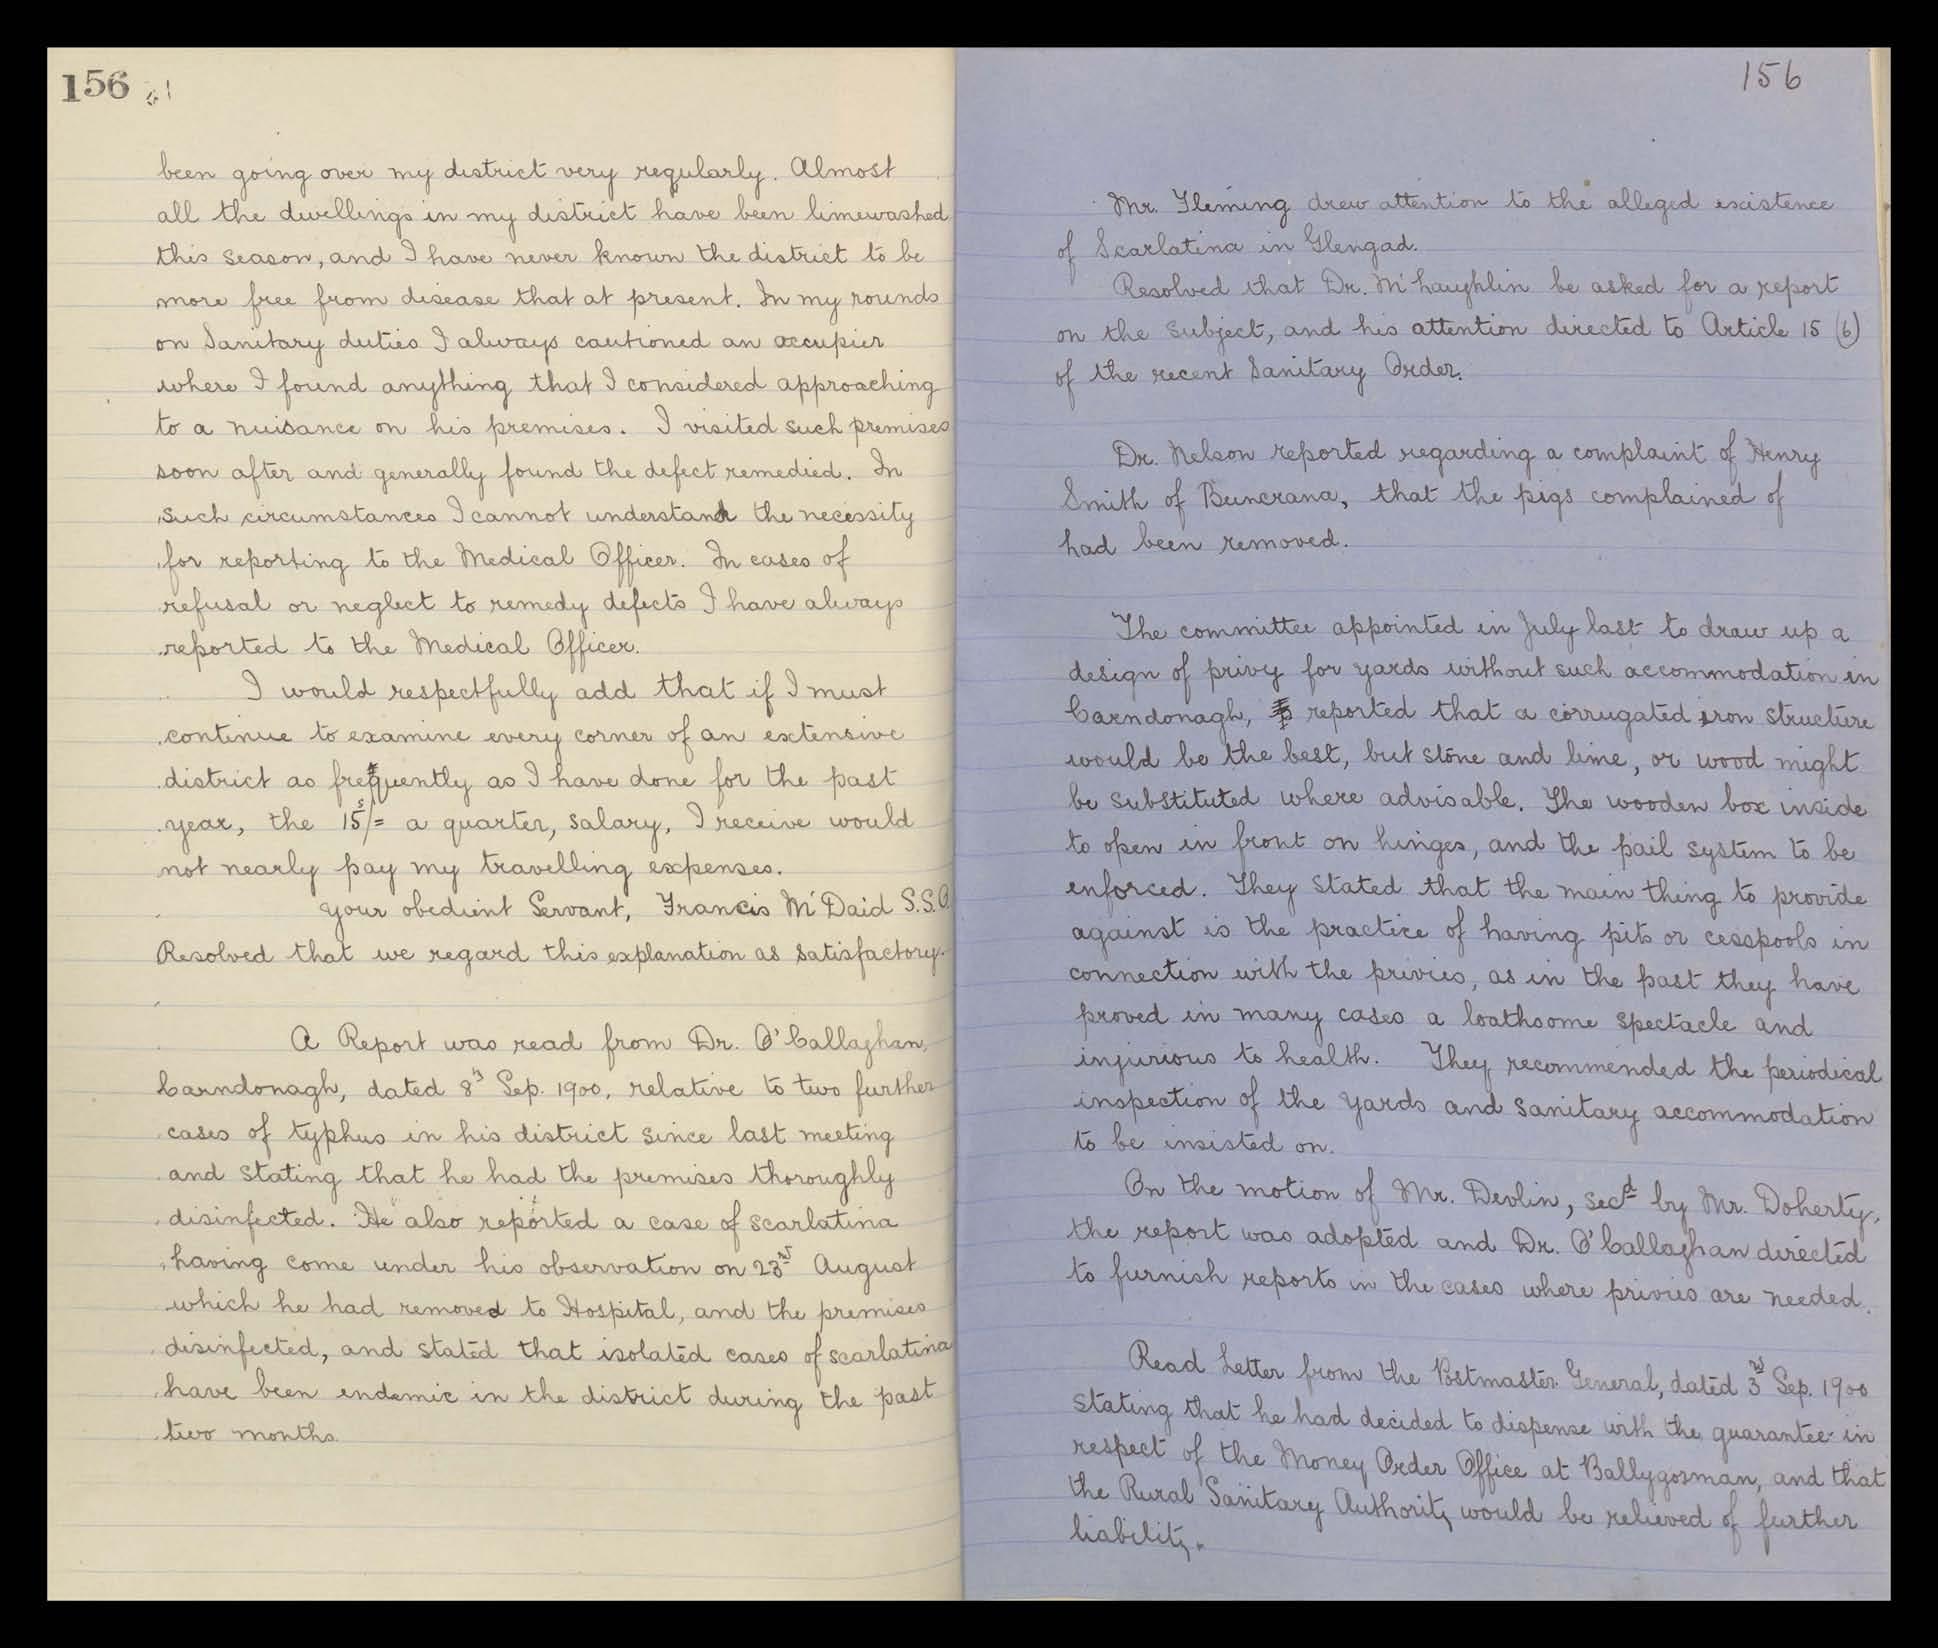 156
been going over my district very regularly. Almost
all the dwellings in my district have been limewashed
this season, and I have never known the district to be
more free from disease that at present. In my rounds
on Sanitary duties I always cautioned an occupier
where I found anything that I considered approaching
to a nuisance on his premises. I visited such premises
soon after and generally found the defect remedied. In
such circumstances I cannot understand the necessity
for reporting to the Medical Officer. In cases of
refusal or neglect to remedy defects I have always
reported to the Medical Officer.
I would respectfully add that if I must
continue to examine every corner of an extensive
district as frequently as I have done for the past
year, the 15s/= a quarter, salary, I receive would
not nearly pay my travelling expenses.
your obedient Servant, Francis McDaid S.S.O.
Resolved that we regard this explanation as satisfactory.
A Report was read from Dr. O'Callaghan,
Carndonagh, dated 8th Sep. 1900, relative to two further
cases of typhus in his district since last meeting
and stating that he had the premises thoroughly
disinfected. He also reported a case of scarlatina
having come under his observation on 23rd August
which he had removed to Hospital, and the premises
disinfected, and stated that isolated cases of scarlatina
have been endemic in the district during the past
two months.
156
Mr. Fleming drew attention to the alleged existence
of Scarlatina in Glengad.
Resolved that Dr. McLaughlin be asked for a report
on the subject, and his attention directed to Article 15 (6)
of the recent Sanitary Order.
Dr. Nelson reported regarding a complaint of Henry
Smith of Buncrana, that the pigs complained of
had been removed.
The committee appointed in July last to draw up a
design of privy for yards without such accommodation in
Carndonagh, reported that a corrugated iron structure
would be the best, but stone and lime, or wood might
be substituted where advisable. The wooden box inside
to open in front on hinges, and the pail system to be
enforced. They stated that the main thing to provide
against is the practice of having pits or cesspools in
connection with the privies, as in the past they have
proved in many cases a loathsome spectacle and
injurious to health. They recommended the periodical
inspection of the yards and sanitary accommodation
to be insisted on.
On the motion of Mr. Devlin, secd by Mr. Doherty,
the report was adopted and Dr. O'Callaghan directed
to furnish reports in the cases where privies are needed.
Read Letter from the Postmaster General, dated 3rd Sep. 1900
stating that he had decided to dispense with the guarantee in
respect of the Money Order Office at Ballygorman, and that
the Rural Sanitary Authority would be relieved of further
liability.